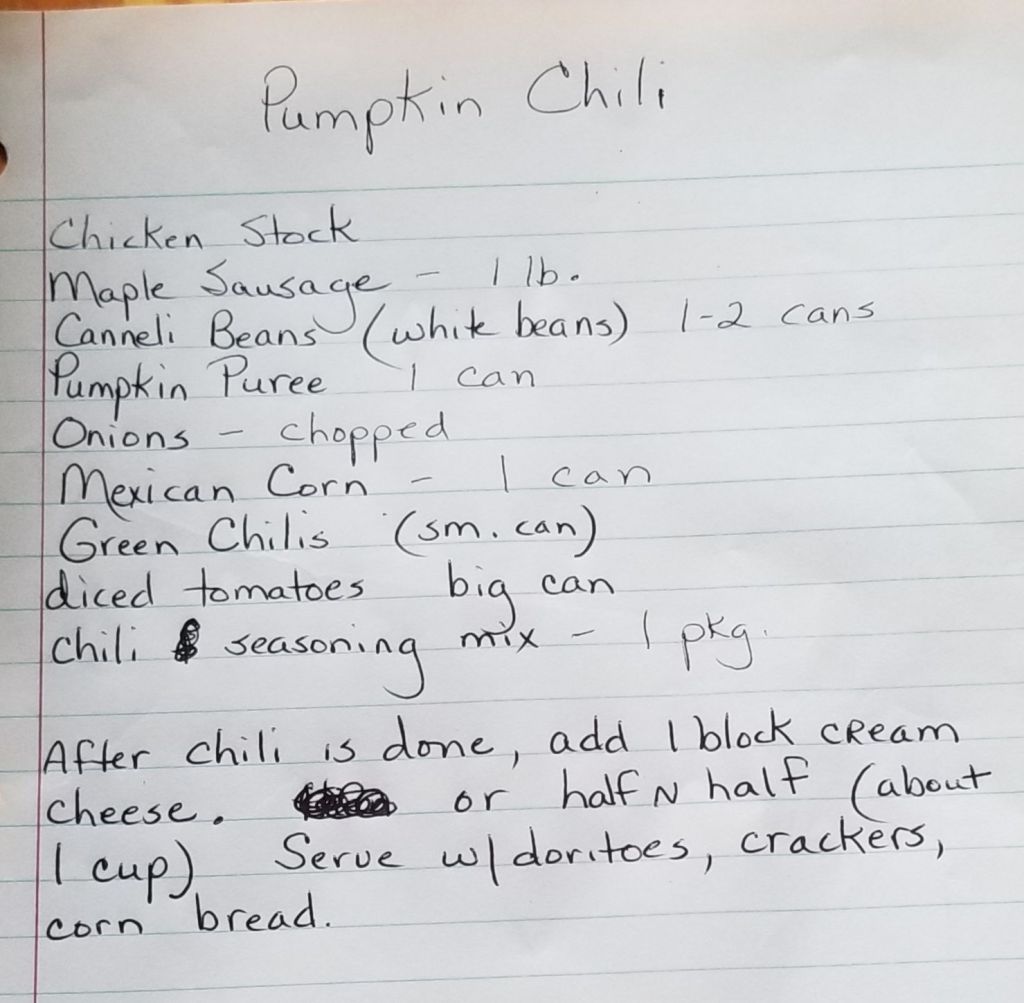 Pumpkin Chili
Chicken Stock
Maple Sausage - 1 lb.
Canneli Beans (white beans) 1-2 cans
Pumpkin Puree 1 can
Onions - chopped
Mexican Corn - 1 can
Green Chilis (sm. can)
diced tomatoes big can
chili seasoning mix - 1 pkg.
After chili is done, add 1 block cream
cheese. or half N half (about
1 cup) Serve w/ doritoes, crackers,
corn bread.